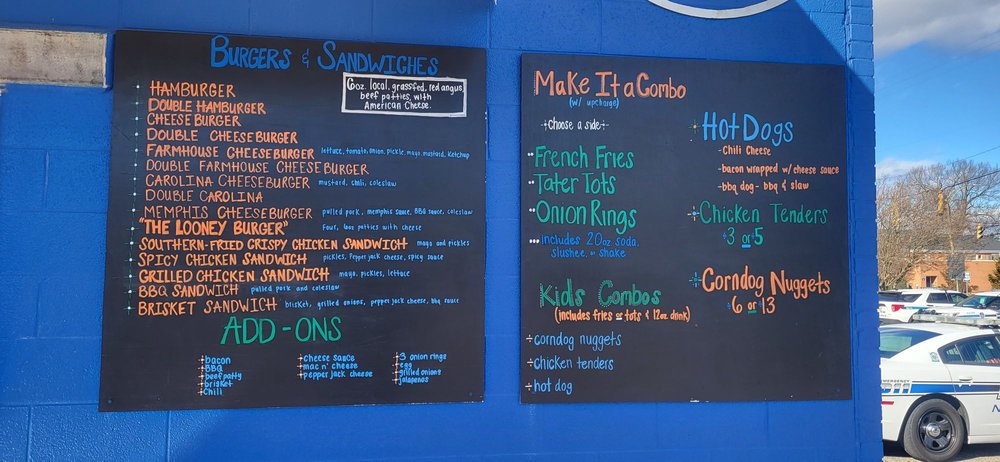 BURGERS & SANDWICHES
6oz. local, grassfed, red angus
beef patties, with
American Cheese.
HAMBURGER
DOUBLE HAMBURGER
CHEESEBURGER
DOUBLE CHEESEBURGER
FARMHOUSE CHEESEBURGER lettuce, tomato, onion, pickle, mayo, mustard, ketchup
DOUBLE FARMHOUSE CHEESEBURGER
CAROLINA CHEESEBURGER mustard, chili, coleslaw
DOUBLE CAROLINA
MEMPHIS CHEESEBURGER pulled pork, memphis sauce, BBQ sauce, coleslaw
"THE LOONEY BURGER" Four, 6oz patties with cheese
SOUTHERN-FRIED CRISPY CHICKEN SANDWICH mayo and pickles
SPICY CHICKEN SANDWICH pickles, Pepper jack cheese, spicy sauce
GRILLED CHICKEN SANDWICH mayo, pickles, lettuce
BBQ SANDWICH pulled pork and coleslaw
BRISKET SANDWICH brisket, grilled onions, pepper jack cheese, bbq sauce
ADD-ONS
bacon
BBQ
beef patty
brisket
chili
cheese sauce
mac n' cheese
pepper jack cheese
3 onion rings
egg
grilled onions
jalapenos
Make It a Combo
(w/ upcharge)
choose a side
French Fries
Tater Tots
Onion Rings
includes 20oz soda,
slushee, or shake
Kids Combos
(includes fries or tots & 12oz drink)
corndog nuggets
chicken tenders
hot dog
Hot Dogs
-Chili Cheese
-bacon wrapped w/ cheese sauce
-bbq dog- bbq & slaw
Chicken Tenders
3 or 5
Corndog Nuggets
6 or 13